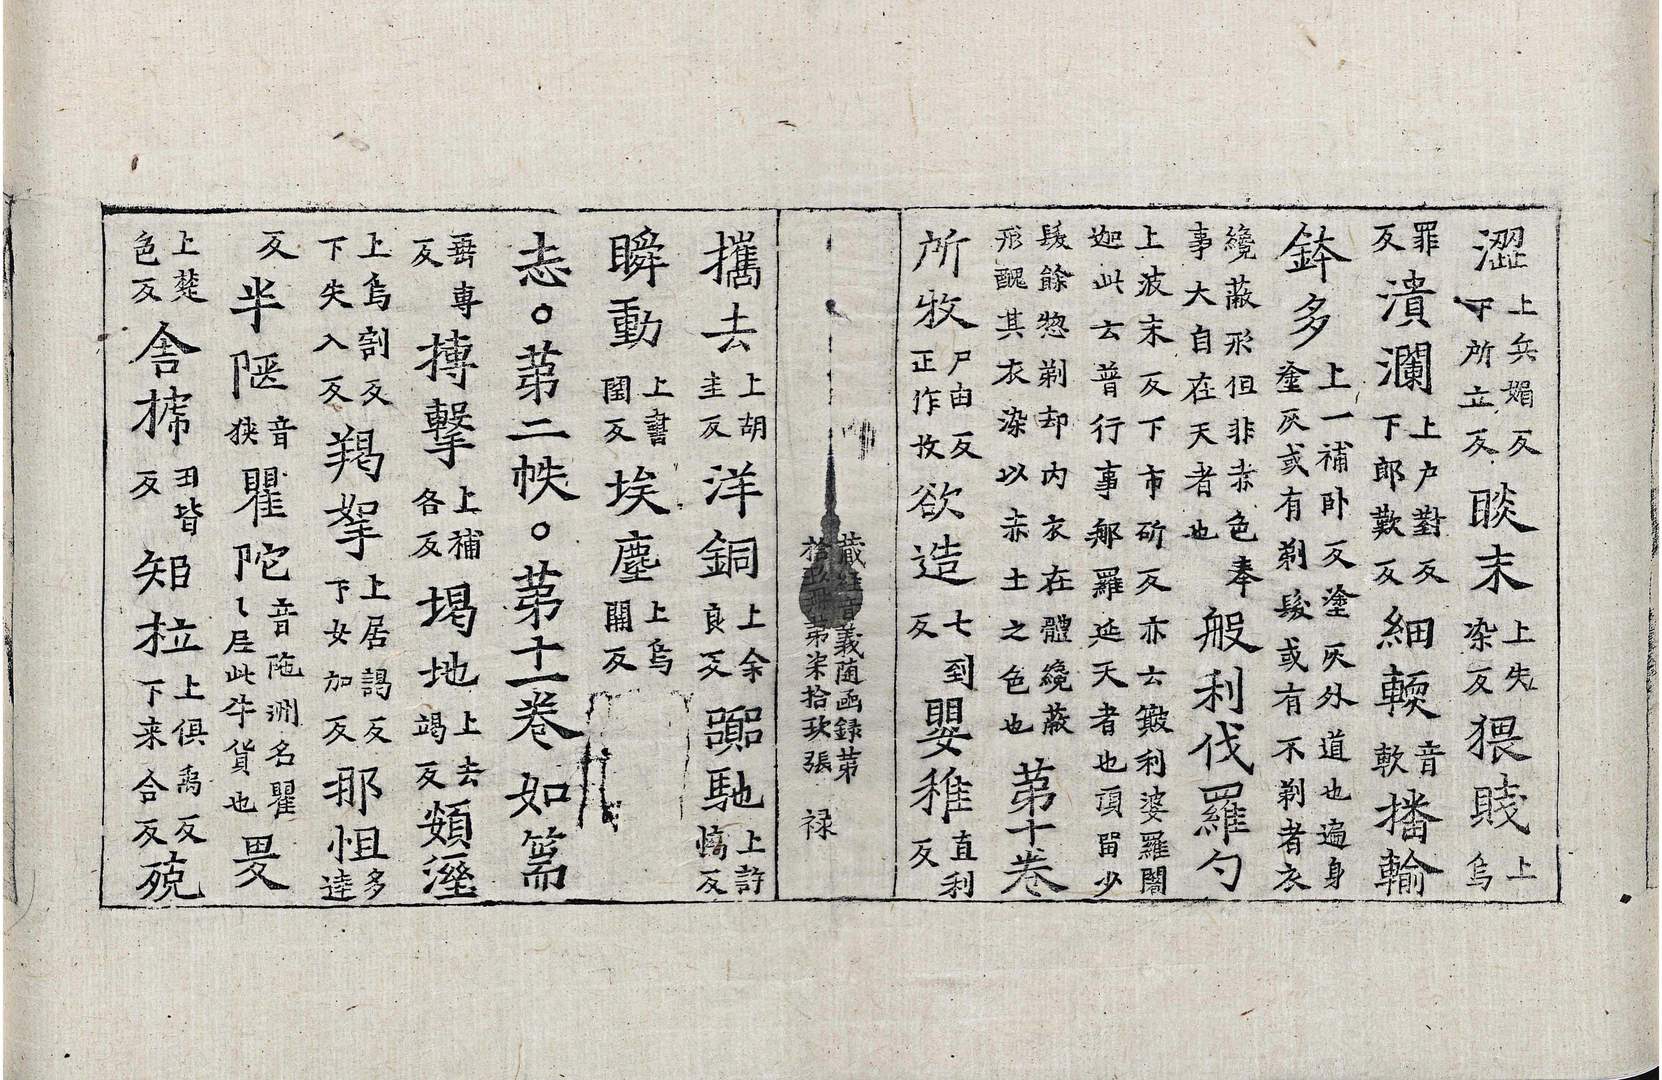 澀上兵媚反下所立反睒末上失染反猥賤上烏
罪反潰瀾上戶對反下郎歎反細輭音軟播輸
鉢多上一補卧反塗灰外道也遍身塗灰或有剃髮或有不剃者衣
纔蔽形但非赤色奉事大自在天者也般利伐羅勺
上波末反下市斫反亦云簸利婆羅闍迦此云普行事那羅延天者也頂留少
髮餘惣剃却內衣在體纔蔽形醜其衣染以赤土之色也第十卷
所牧尸由反正作收欲造七到反嬰稚直利反
藏經音義随函録第拾冊第柒拾玖張 禄
攜去上胡圭反洋銅上余良反躍馳上許憍反
瞬動上書閏反埃塵上烏開反
恚。第二帙。第十一卷如篅
垂專反搏擊上補各反堨地上去竭反頞溼
上烏割反下失入反羯拏上居謁反下女加反那怛多達
反半陿音狹瞿陀音陁洲名瞿〻尼此牛貨也畟
上楚色反舍㮈丑皆反矩拉上俱禹反下来合反殑